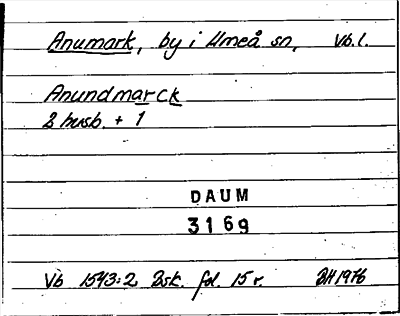 Anumark, by i Umeå sn, Vb.l.
Anundmarck
2 husb. + 1
DAUM
3169
Vb 1543:2 Bsk. fol. 15 r. BH 1976